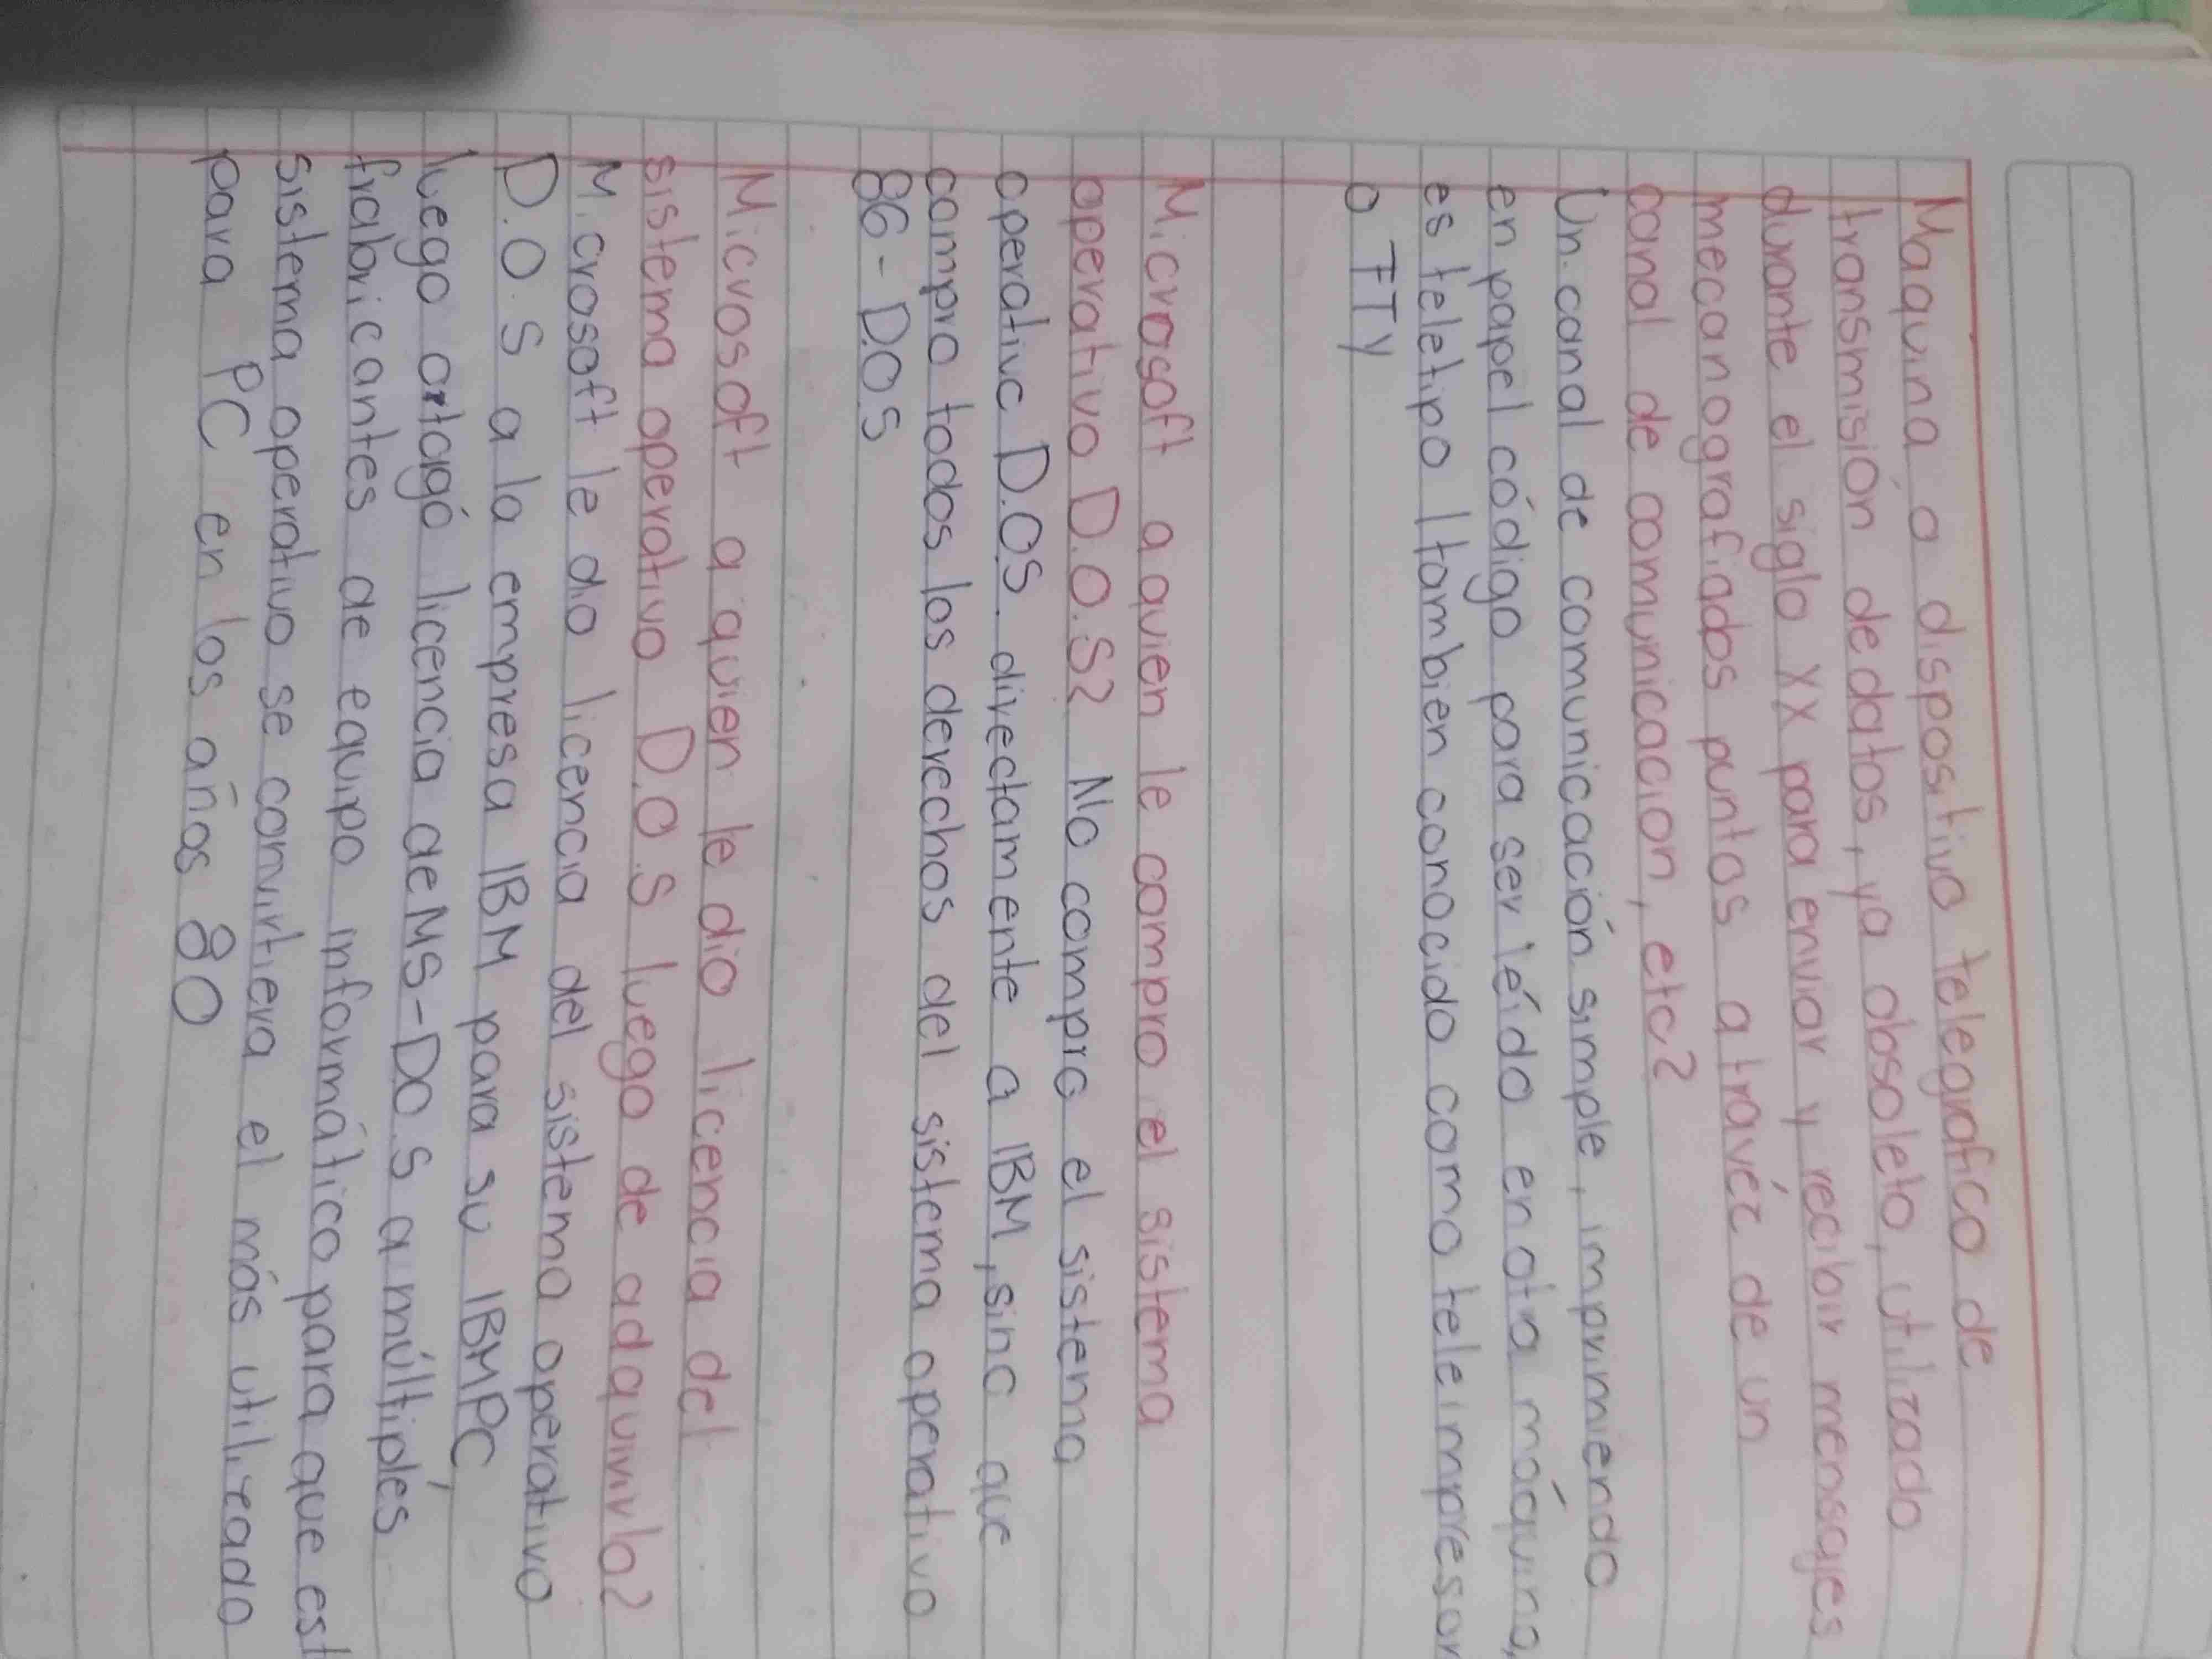 Maquina o dispositivo telegrafico de
transmisión de datos, ya obsoleto, utilizado
durante el siglo XX para enviar y recibir mensages
mecanografiados puntos a travéz de un
canal de comunicacion, etc?
Un canal de comunicación simple, imprimiendo
en papel código para ser leído en otra máquina,
es teletipo (tambien conocido como teleimpresor
o TTY
Microsoft a quien le compro el sistema
operativo D.O.S? No compro el sistema
operativo D.O.S. directamente a IBM, sino que
compro todos los derechos del sistema operativo
86-D.O.S
Microsoft a quien le dio licencia del
sistema operativo D.O.S luego de adquirirlo?
Microsoft le dio licencia del sistema operativo
D.O.S a la empresa IBM para su IBMPC,
luego ortagó licencia de MS-DO.S a múltiples
frabricantes de equipo informático para que est
sistema operativo se convirtiera el más utilizado
para PC en los años 80